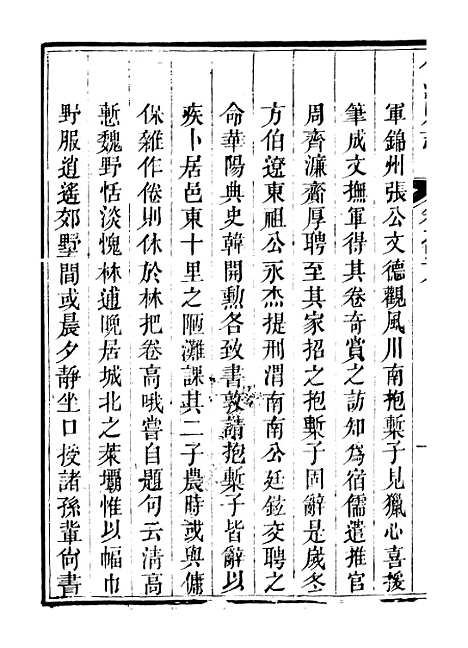 軍錦州張公文德觀風川南抱槧子見獵心喜援
筆成文撫軍得其卷奇賞之訪知為宿儒遣推官
周齊濂齋厚聘至其家招之抱槧子固辭是歲冬
方伯遼東祖公永杰提刑渭南南公廷鉉交聘之
命華陽典史韓開勲各致書敦請抱槧子皆辭以
疾卜居邑東十里之陋灘課其二子農時或與傭
保雜作倦則休於林把卷高哦嘗自題句云清高
慙魏野恬淡愧林逋晚居城北之萊壩惟以幅巾
野服逍遙郊墅間或晨夕静坐口授諸孫輩尙書